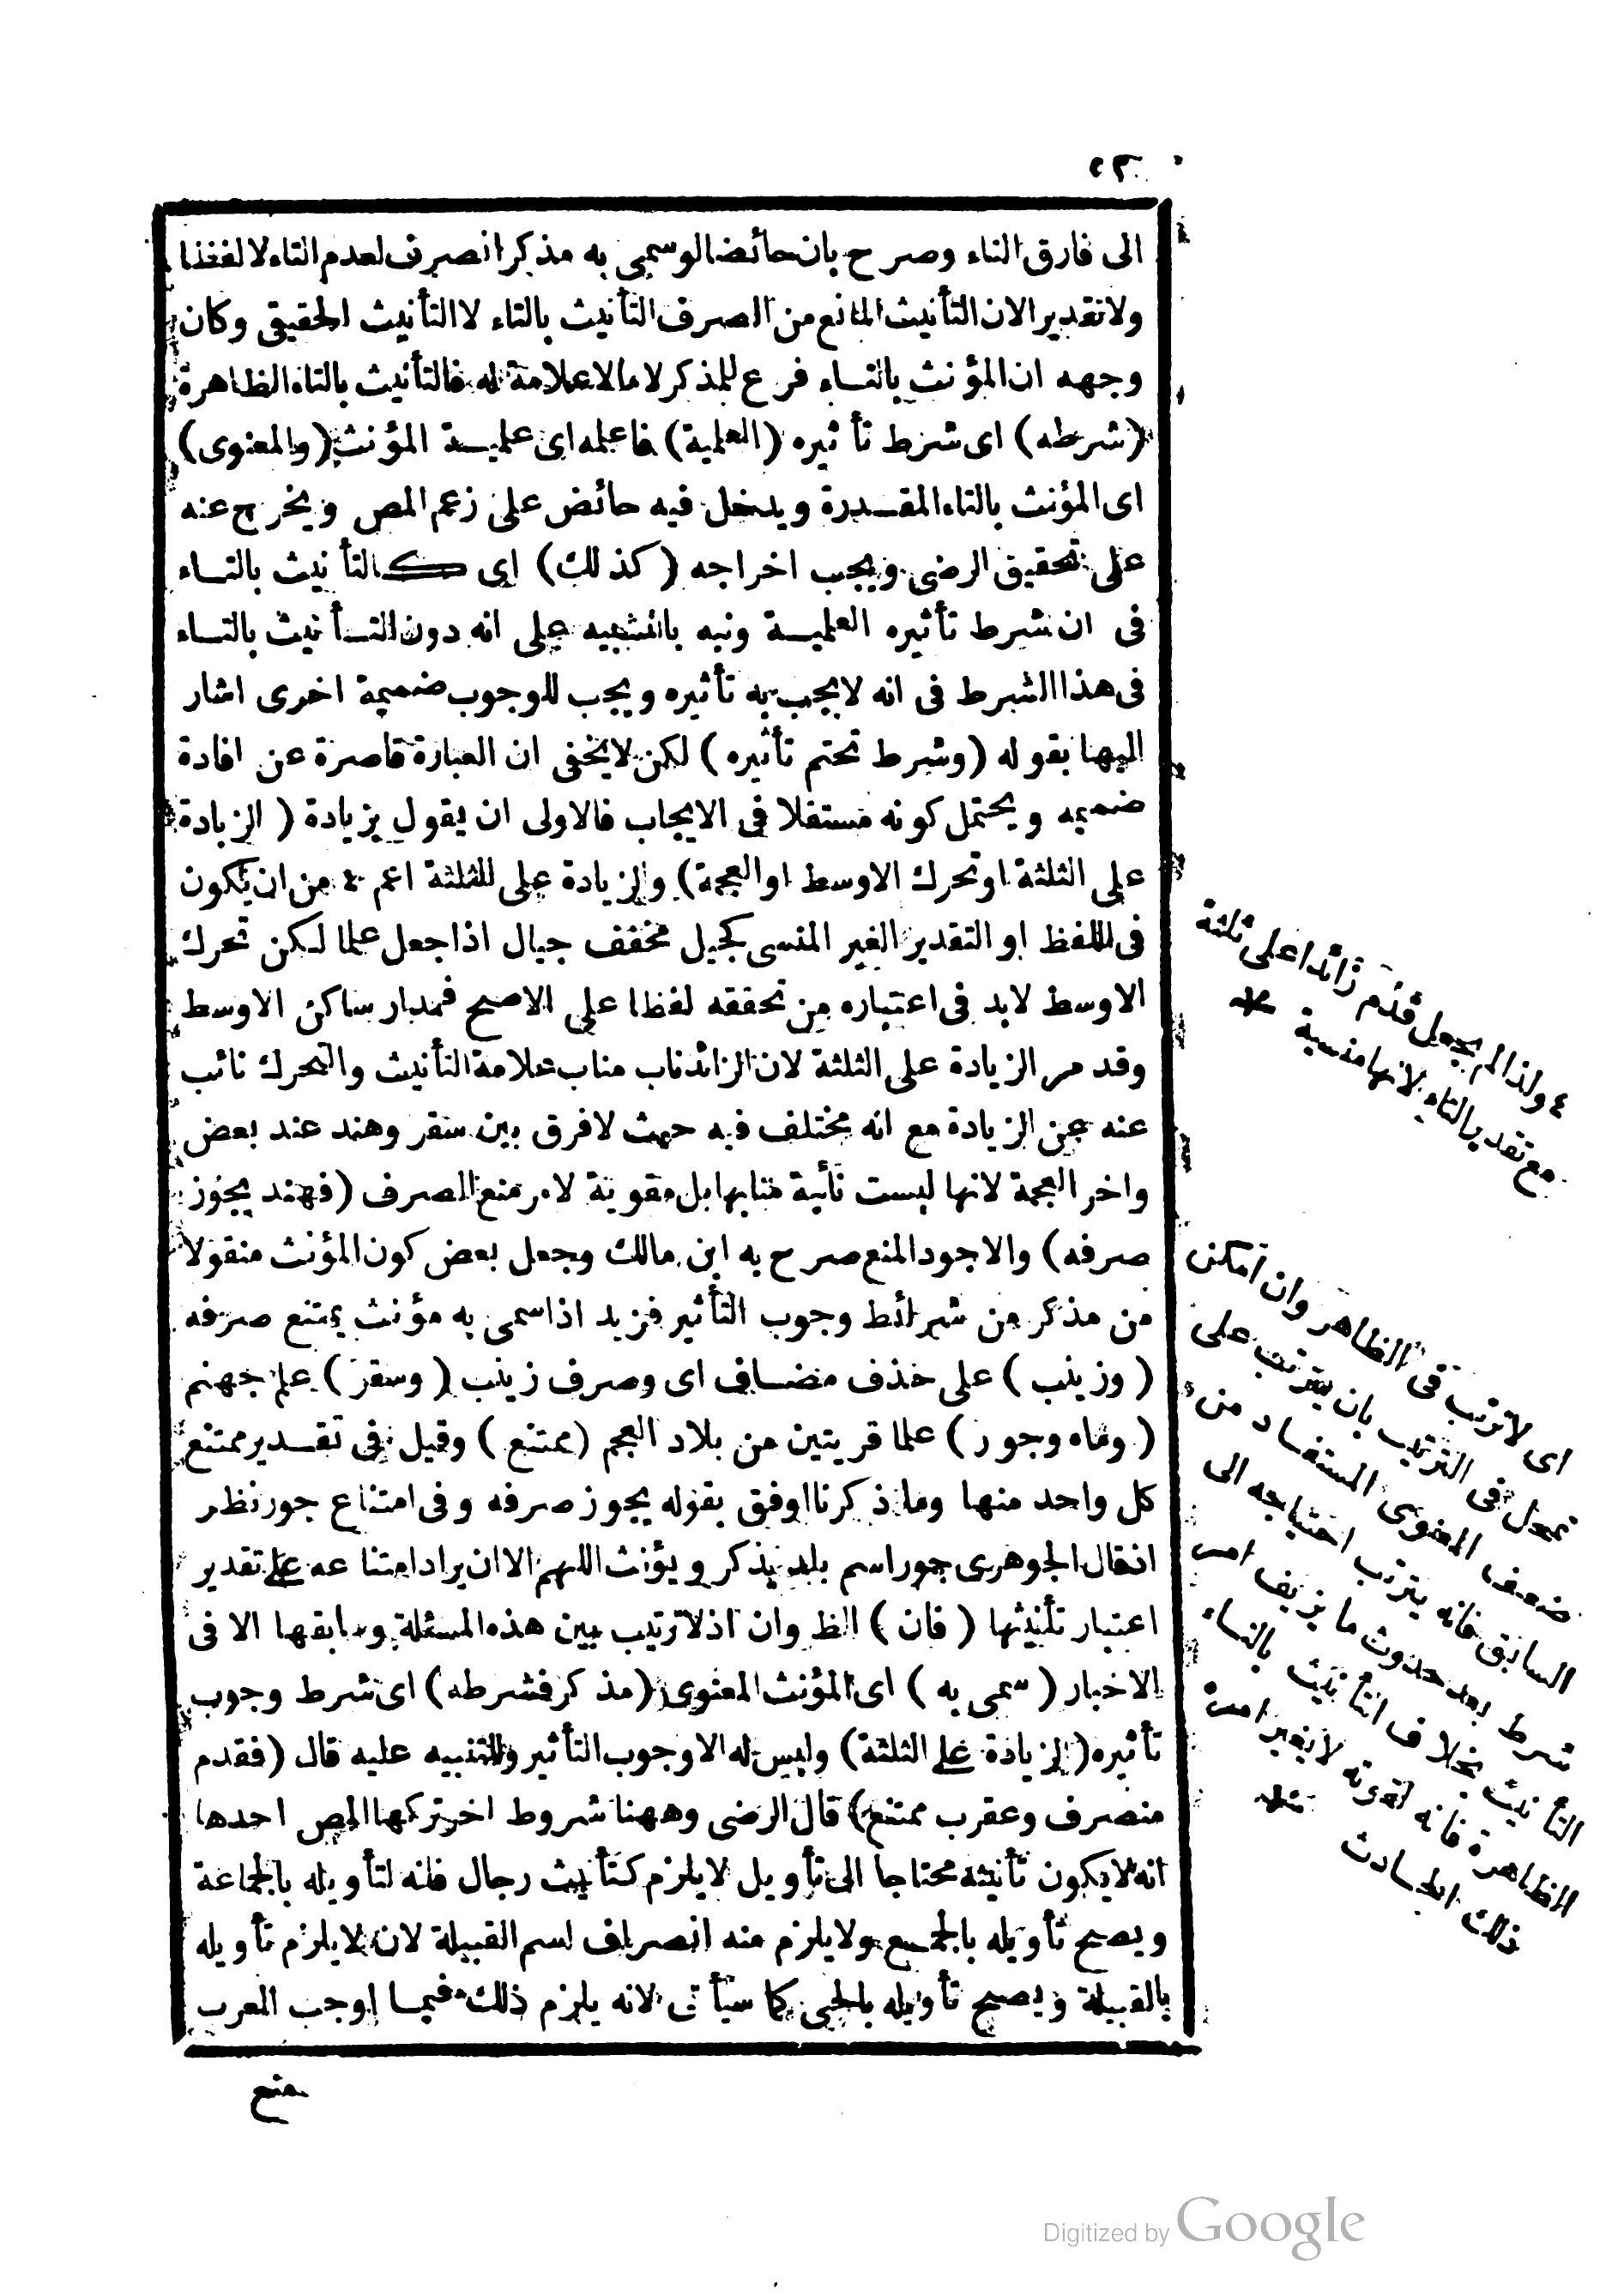 ٥٢
الى فارق التاء وصرح بان حائضا لو سمى به مذكر انصرف لعدم التاء لا لفظا
ولا تقديرا لان التأنيث المانع من الصرف التأنيث بالتاء لا التأنيث الحقيقى وكان
وجهه ان المؤنث بالتاء فرع للمذكر لا ما لا علامة له فالتأنيث بالتاء الظاهرة
(شرطه) اى شرط تأثيره (العلمية) فاعله اى علمية المؤنث (والمعنوى)
اى المؤنث بالتاء المقدرة ويدخل فيه حائض على زعم المص ويخرج عنه
على تحقيق الرضى ويجب اخراجه (كذلك) اى كالتأنيث بالتاء
فى ان شرط تأثيره العلمية ونبه بالتشبيه على انه دون التأنيث بالتاء
فى هذا الشرط فى انه لا يجب به تأثيره ويجب للوجوب ضميمة اخرى اشار
اليها بقوله (وشرط تحتم تأثيره) لكن لا يخفى ان العبارة قاصرة عن افادة
ضميمه ويحتمل كونه مستقلا فى الايجاب فالاولى ان يقول بزيادة (الزيادة
على الثلثة او تحرك الاوسط او العجمة) والزيادة على الثلثة اعم ٤ من ان يكون
فى اللفظ او التقدير الغير المنسى كجيل مخفف جيال اذا جعل علما لكن تحرك
الاوسط لا بد فى اعتباره من تحققه لفظا على الاصح فمدار ساكن الاوسط
وقد مر الزيادة على الثلثة لان الزائد ناب مناب علامة التأنيث والتحرك نائب
عنه عن الزيادة مع انه مختلف فيه حيث لا فرق بين سقر وهند عند بعض
واخر العجمة لانها ليست نائبة منابها بل مقوية لامر منع الصرف (فهند يجوز
صرفه) والاجود المنع صرح به ابن مالك وجعل بعض كون المؤنث منقولا
من مذكر من شرائط وجوب التأثير فزيد اذا سمى به مؤنث يمتنع صرفه
(وزينب) على حذف مضاف اى وصرف زينب (وسقر) علم جهنم
(وماه وجور) علما قريتين من بلاد العجم (ممتنع) وقيل فى تقدير ممتنع
كل واحد منها وما ذكرنا اوفق بقوله يجوز صرفه وفى امتناع جور نظر
اذ قال الجوهرى جور اسم بلد يذكر ويؤنث اللهم الا ان يراد امتناعه على تقدير
اعتبار تأنيثها (فان) الظ وان اذ لا ترتيب بين هذه المسئلة وسابقها الا فى
الاخبار (سمى به) اى المؤنث المعنوى (مذكر فشرطه) اى شرط وجوب
تأثيره (الزيادة على الثلثة) وليس له الا وجوب التأثير وللتنبيه عليه قال (فقدم
منصرف وعقرب ممتنع) قال الرضى وههنا شروط اخر تركها المص احدها
انه لا يكون تأنيثه محتاجا الى تأويل لا يلزم كتأنيث رجال فانه لتأويله بالجماعة
ويصح تأويله بالجمع ولا يلزم منه انصراف اسم القبيلة لان لا يلزم تأويله
بالقبيلة ويصح تأويله بالحى كما سيأتى لانه يلزم ذلك فيما اوجب المعرب
منع
٤ ولذا لم يجعل قدم زائدا على ثلثة
مع تقدير التاء لانها منسية
اى لا ترتب فى الظاهر وان امكن
تمحل فى الترتيب بان يترتب على
ضعف المعنوى المستفاد من
السابق فانه يترتب احتياجه الى
شرط بعد حدوث ما يزيف امر
التأنيث بخلاف التأنيث بالتاء
الظاهرة فانه لقوته لا يغير امره
ذلك الحادث
Digitized by Google